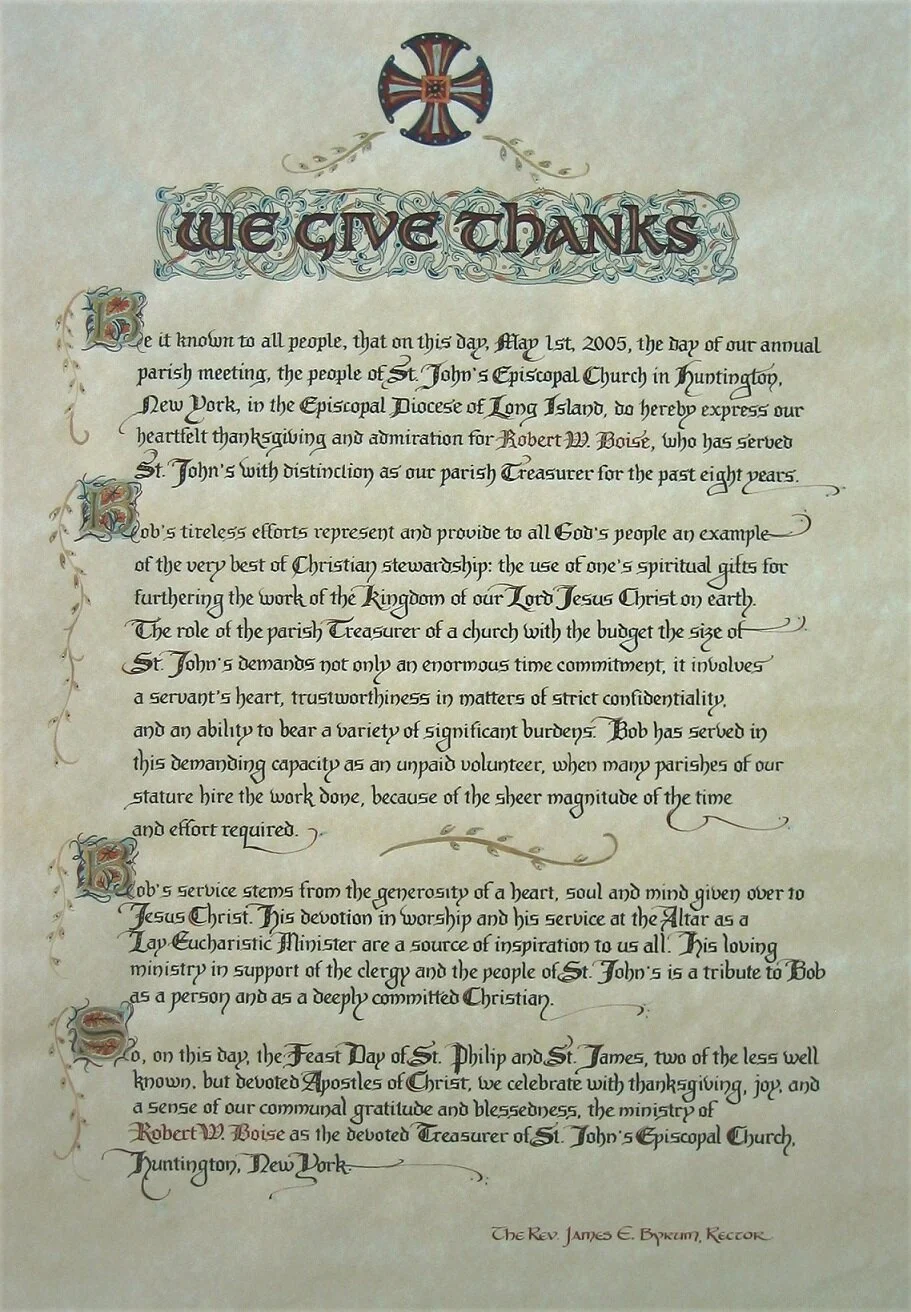 WE GIVE THANKS
Be it known to all people, that on this day, May 1st, 2005, the day of our annual
parish meeting, the people of St. John's Episcopal Church in Huntington,
New York, in the Episcopal Diocese of Long Island, do hereby express our
heartfelt thanksgiving and admiration for Robert W. Boise, who has served
St. John's with distinction as our parish Treasurer for the past eight years.
Bob's tireless efforts represent and provide to all God's people an example
of the very best of Christian stewardship: the use of one's spiritual gifts for
furthering the work of the Kingdom of our Lord Jesus Christ on earth.
The role of the parish Treasurer of a church with the budget the size of
St. John's demands not only an enormous time commitment, it involves
a servant's heart, trustworthiness in matters of strict confidentiality,
and an ability to bear a variety of significant burdens. Bob has served in
this demanding capacity as an unpaid volunteer, when many parishes of our
stature hire the work done, because of the sheer magnitude of the time
and effort required.
Bob's service stems from the generosity of a heart, soul and mind given over to
Jesus Christ. His devotion in worship and his service at the Altar as a
Lay Eucharistic Minister are a source of inspiration to us all. His loving
ministry in support of the clergy and the people of St. John's is a tribute to Bob
as a person and as a deeply committed Christian.
So, on this day, the Feast Day of St. Philip and St. James, two of the less well
known, but devoted Apostles of Christ, we celebrate with thanksgiving, joy, and
a sense of our communal gratitude and blessedness, the ministry of
Robert W. Boise as the devoted Treasurer of St. John's Episcopal Church,
Huntington, New York.
The Rev. James E. Byrum, Rector